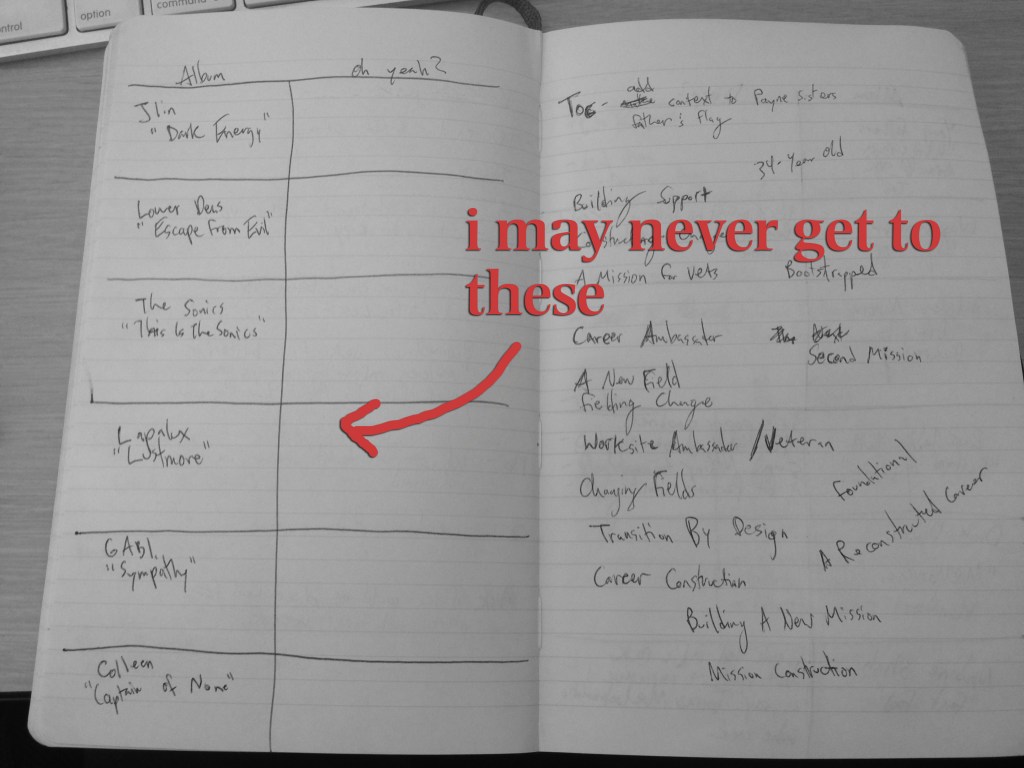 option
command
Album
oh yeah?
Jlin
"Dark Energy"
Lower Dens
"Escape From Evil"
The Sonics
"This Is The Sonics"
Lapalux
"Lustmore"
GABI
"Sympathy"
Colleen
"Captain of None"
i may never get to
these
add
context to Payne Sisters
father's flag
34-Year Old
Building Support
A Mission for Vets
Bootstrapped
Career Ambassador
Second Mission
A New Field
Fielding Change
Worksite Ambassador / Veteran
Changing Fields
Foundational
Transition By Design
A Reconstructed Career
Career Construction
Building A New Mission
Mission Construction